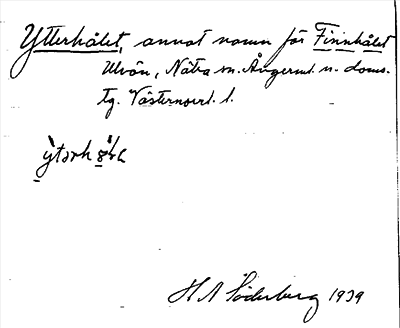 Ytterhålet, annat namn för Finnhålet
Ulvön, Nätra sn. Ångerml. n. doms.
tg. Västernorrl. l.
H N Söderberg 1939